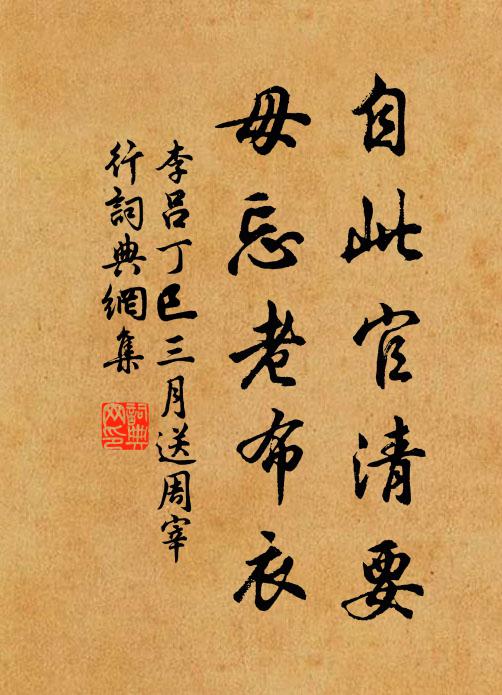 自此官清要
毋忘老布衣
李呂丁巳三月送周宰
行詞典網集
詞典
网印